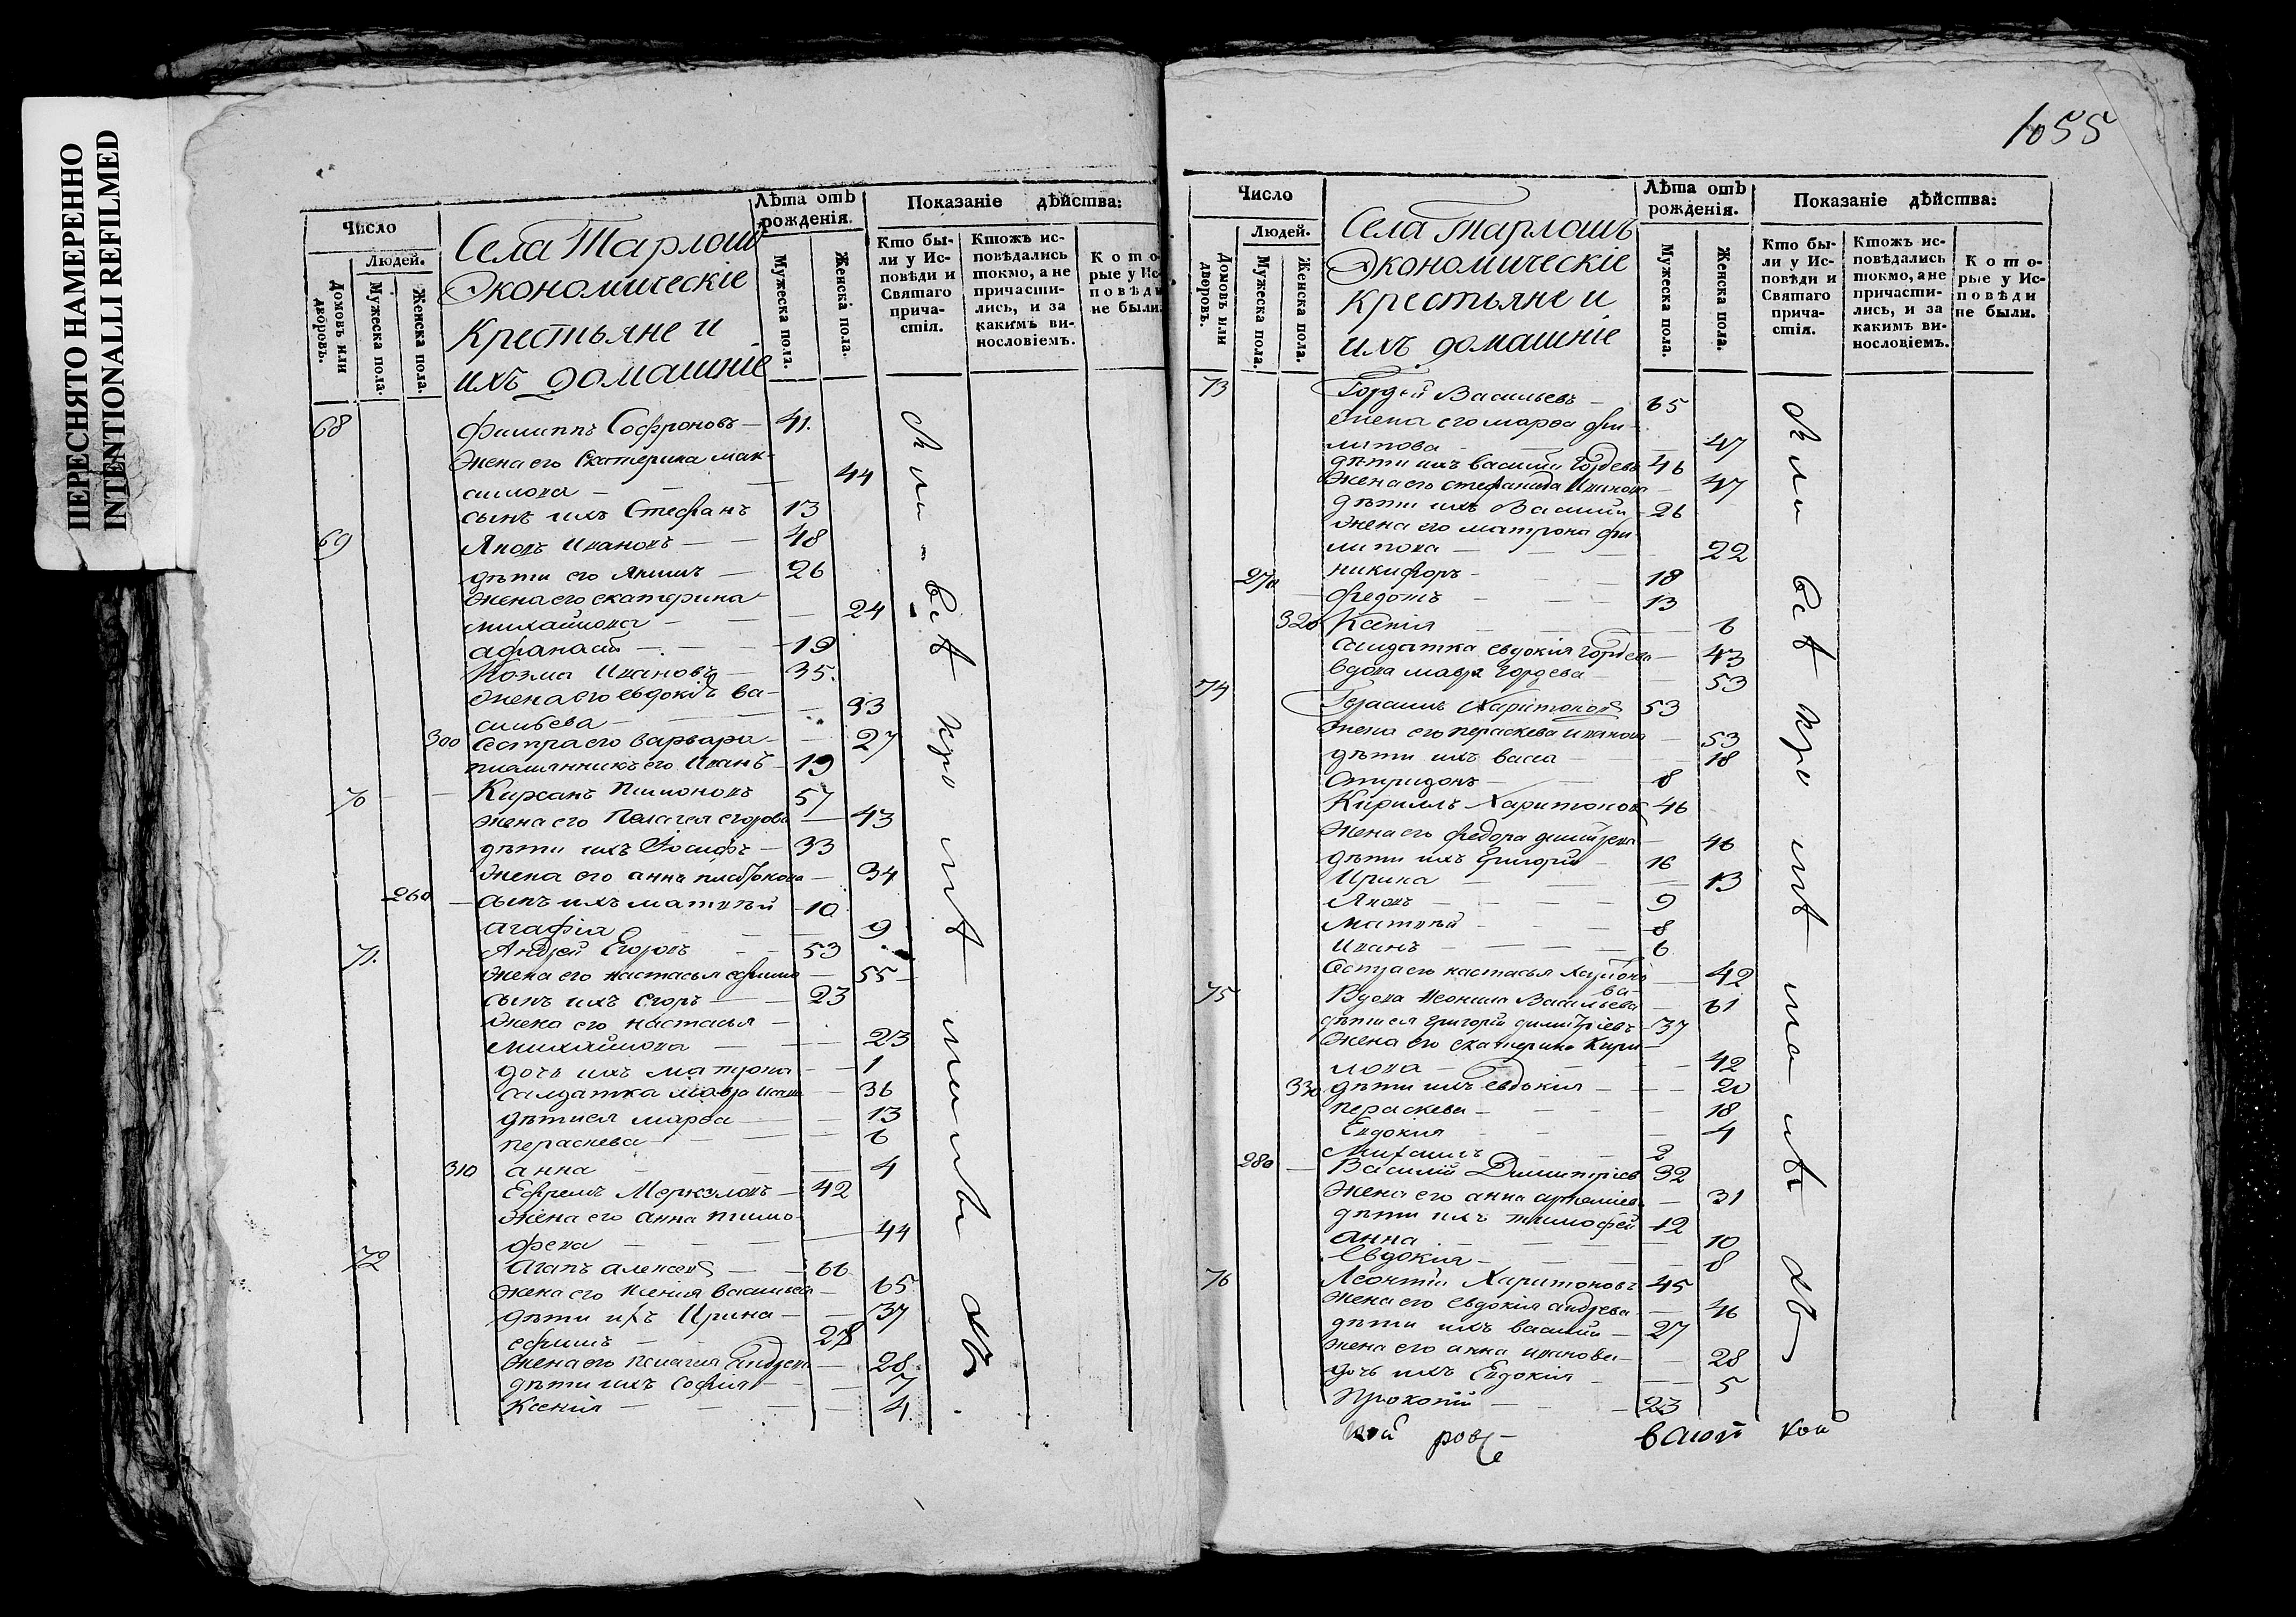 ПЕРЕСНЯТО НАМЕРЕННО
INTENTIONALLI REFILMED
Число
Людей.
Домовъ или дворовъ.
Мужеска пола.
Женска пола.
Села Тарлошъ
Экономическіе
Крестьяне и
ихъ домашніе
Лѣта отъ рожденія.
Мужеска пола.
Женска пола.
Показаніе дѣйства:
Кто были у Исповѣди и Святаго причастія.
Ктожъ исповѣдались токмо, а не причастились, и за какимъ винословіемъ.
Которые у Исповѣди не были.
68 Филиппъ Софроновъ — 41.
жена его Екатерина мак-
симова — 44
сынъ ихъ Стефанъ 13
69 Яковъ Ивановъ — 48
дѣти его Якимъ — 26
жена его екатерина
михайлова — 24
афанасій — 19
Козма Ивановъ — 35.
жена его евдокія ва-
сильева — 33
300 сестра его варвара — 27
племянникъ его Иванъ — 19
70 Кирсанъ Пимоновъ 57
жена его Пелагея егорова — 43
дѣти ихъ Іосифъ — 33
жена его анна — 34
260 сынъ ихъ матвѣй — 10
агафія 9
71. Андрей Егоровъ 53
жена его настасья ефимова — 55
сынъ ихъ егоръ — 23
жена его настасья —
михайлова — 23
дочь ихъ матрона — 1
салдатка мавра — 36
дѣти ея марфа — 13
пераскева — 6
310 анна — 4
Ефремъ Меркуловъ — 42
жена его анна тимо-
феева — 44
72 Агапъ алексеевъ — 66
жена его ксенія васильева — 65
дѣти ихъ Ирина — 37
ефимъ — 28
жена его пелагея андреева — 28
дѣти ихъ софія — 7
Ксенія — 4.
1055
Число
Людей.
Домовъ или дворовъ.
Мужеска пола.
Женска пола.
Села Тарлошъ
Экономическіе
крестьяне и
ихъ домашніе
Лѣта отъ рожденія.
Мужеска пола.
Женска пола.
Показаніе дѣйства:
Кто были у Исповѣди и Святаго причастія.
Ктожъ исповѣдались токмо, а не причастились, и за какимъ винословіемъ.
Которые у Исповѣди не были.
73 Гордѣй Васильевъ — 65
жена его марфа фи-
липова — 47
дѣти ихъ василій Гордеевъ 46
жена его стефанида Иванова — 47
дѣти ихъ Василій — 26
жена его матрона фи-
липова — 22
270 никифоръ — 18
федотъ — 13
320 Ксенія — 6
салдатка евдокія Гордева — 43
вдова мавра Гордева — 53
74 Герасимъ Харитоновъ 53
жена его пераскева иванова — 53
дѣти ихъ васса — 18
Спиридонъ — 8
Кириллъ Харитоновъ 46
жена его федора — 46
дѣти ихъ Григорій — 16
Ирина — 13
Яковъ — 9
Матвѣй — 8
Иванъ — 6
Сестра его настасья Харитоно
ва — 42
75 Вдова Неонила Васильева — 61
дѣти ея григорій димитріевъ — 37
жена его екатерина кири-
лова — 42
330 дѣти ихъ евдокія — 20
пераскева — 18
Евдокия — 4
Михаилъ — 2
280 Василій Димитріевъ 32
жена его анна артемиева — 31
дѣти ихъ тимофей 12
анна — 10
Евдокия — 8
76 Леонтій Харитоновъ 45
жена его евдокія андреева — 46
дѣти ихъ василій — 27
жена его анна иванова — 28
дочь ихъ Евдокія — 5
Прокопій — 23